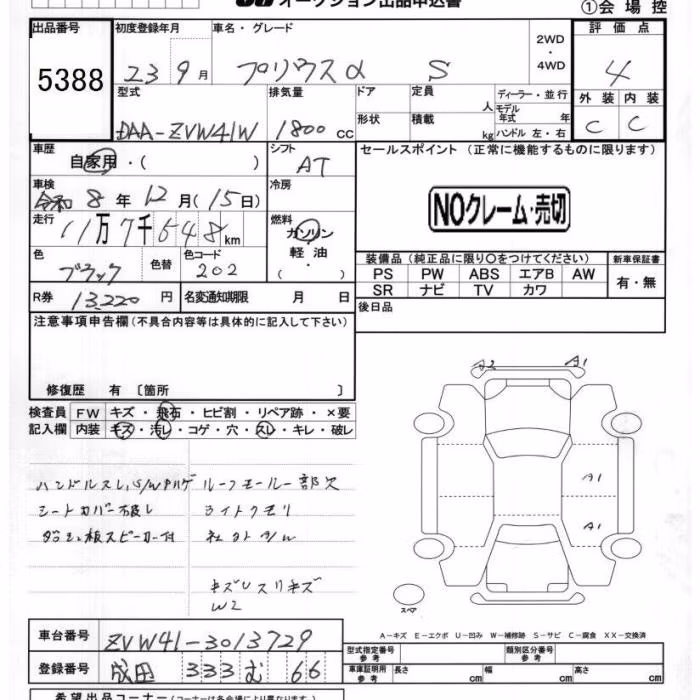 オークション出品申込書 ①会場控
出品番号 初度登録年月 車名・グレード 2WD・4WD 評価点
5388 23 9月 プリウスα S 4
型式 排気量 ドア 定員 人 ディーラー・並行 外装 内装
DAA-ZVW41W 1800cc 形状 積載 kg モデル年式 年 ハンドル 左・右 C C
車歴 シフト セールスポイント (正常に機能するものに限ります)
自家用・( ) AT
車検 冷房
令和8年12月(15日) NOクレーム・売切
走行 燃料
11万7千648km ガソリン・軽油
色 色替 色コード 装備品(純正品に限り○をつけてください) 新車保証書
ブラック 202 PS PW ABS エアB AW 有・無
SR ナビ TV カワ
R券 13220円 名変通知期限 月 日 後日品
注意事項申告欄(不具合内容等は具体的に記入して下さい)
修復歴 有〔箇所 〕
検査員 FW キズ・飛石・ヒビ割・リペア跡・×要
記入欄 内装 キズ・汚レ・コゲ・穴・スレ・キレ・破レ
A2 A1
ハンドルスレ、S/Wハゲ ルーフモール一部欠
シートカバー破レ ライトクモリ
ダッシュ板スピーカー付
A1
A1
キズUスリキズ
W2
スペア
A-キズ E-エクボ U-凹み W-補修跡 S-サビ C-腐食 XX-交換済
車台番号 ZVW41-3013729 型式指定番号 参考 類別区分番号 参考
登録番号 成田 333 む 66 車庫証明用 参考 長さ cm 幅 cm 高さ cm
希望出品コーナー(コーナーは各会場により異なります)